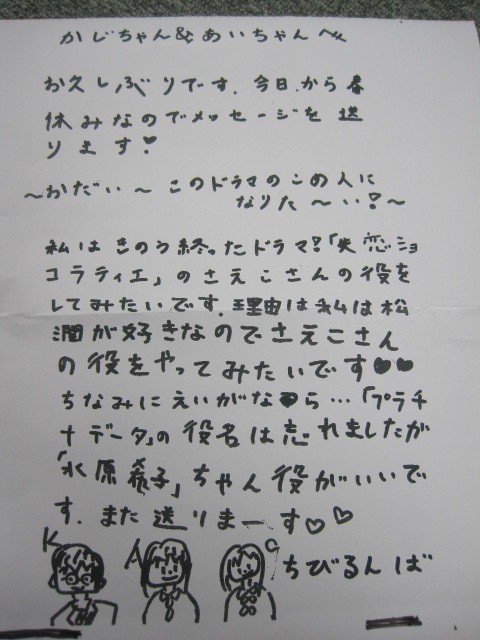 かじちゃん&あいちゃんへ
お久しぶりです。今日から春
休みなのでメッセージを送
ります♡
〜かだい〜このドラマのこの人に
なりた〜い!〜
私はきのう終ったドラマ!「失恋ショ
コラティエ」のさえこさんの役を
してみたいです。理由は私は松
潤が好きなのでさえこさん
の役をやってみたいです♥♥
ちなみにえいがなら…「プラチ
ナデータ」の役名は忘れましたが
「水原希子」ちゃん役がいいで
す。また送りまーす♡♡
K A
ちびるんば